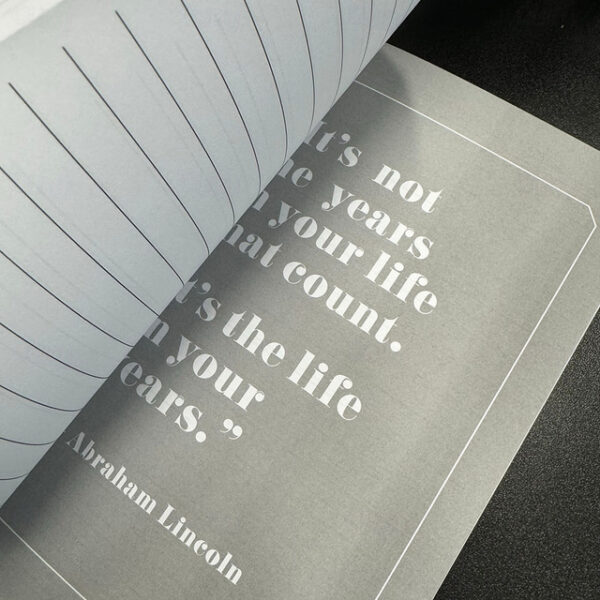 It's not
he years
n your life
hat count.
t's the life
n your
ears."
Abraham Lincoln